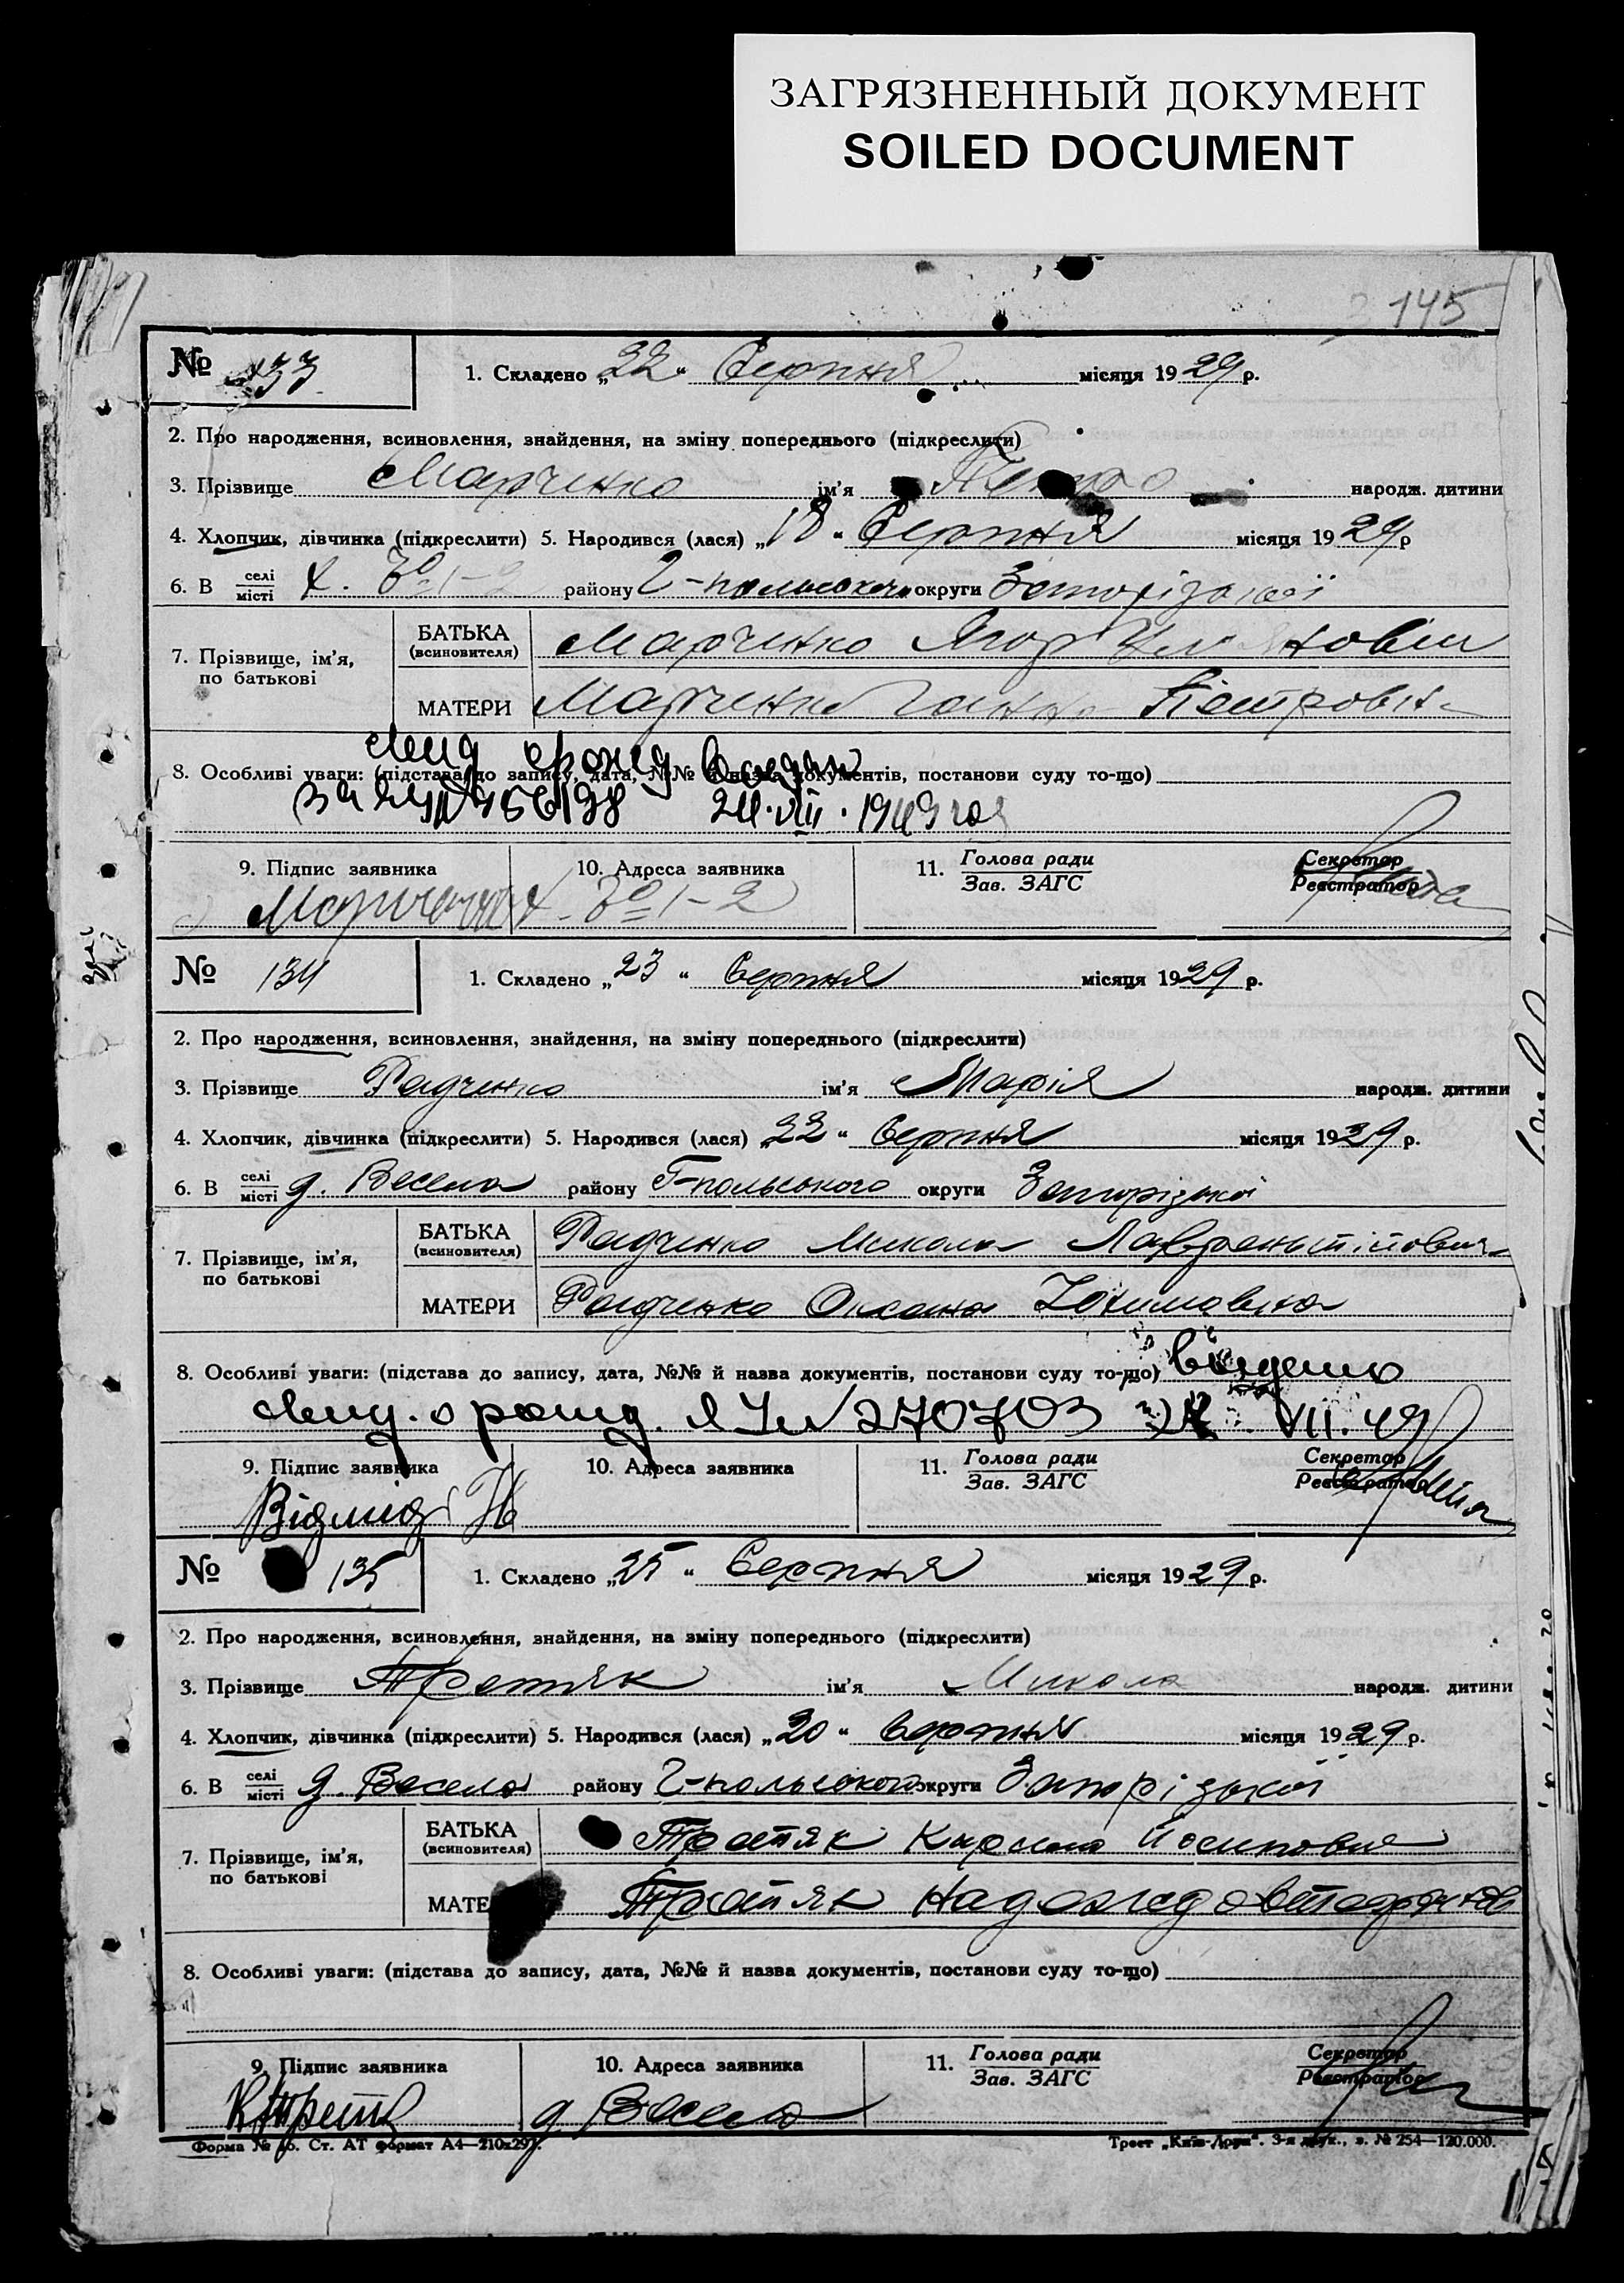 ЗАГРЯЗНЕННЫЙ ДОКУМЕНТ
SOILED DOCUMENT
145
№ 133 1. Складено „22“ Серпня місяця 1929 р.
2. Про народження, всиновлення, знайдення, на зміну попереднього (підкреслити)
3. Прізвище Марченко ім'я Петро народж. дитини
4. Хлопчик, дівчинка (підкреслити) 5. Народився (лася) „18“ Серпня місяця 1929 р
6. В селі місті х. району Г-польського округи Запорізької
7. Прізвище, ім'я, по батькові
БАТЬКА (всиновителя) Марченко Ягор
МАТЕРИ Марченко Ганна Петровна
8. Особливі уваги: (підстава до запису, дата, №№ й назва документів, постанови суду то-що)
24.VIII.1949 год
9. Підпис заявника 10. Адреса заявника 11. Голова ради Зав. ЗАГС Секретар Реєстратор
№ 134 1. Складено „23“ Серпня місяця 1929 р.
2. Про народження, всиновлення, знайдення, на зміну попереднього (підкреслити)
3. Прізвище Радченко ім'я Марія народж. дитини
4. Хлопчик, дівчинка (підкреслити) 5. Народився (лася) „22“ Серпня місяця 1929 р.
6. В селі місті д. Весела району Г-польського округи Запорізької
7. Прізвище, ім'я, по батькові
БАТЬКА (всиновителя) Радченко Микола Лаврентійович
МАТЕРИ Радченко Оксана
8. Особливі уваги: (підстава до запису, дата, №№ й назва документів, постанови суду то-що)
свид. о рожд. № 270703 VII. 49
9. Підпис заявника 10. Адреса заявника 11. Голова ради Зав. ЗАГС Секретар Реєстратор
№ 135 1. Складено „25“ Серпня місяця 1929 р.
2. Про народження, всиновлення, знайдення, на зміну попереднього (підкреслити)
3. Прізвище Третяк ім'я Микола народж. дитини
4. Хлопчик, дівчинка (підкреслити) 5. Народився (лася) „20“ Серпня місяця 1929 р.
6. В селі місті д. Весела району Г-польського округи Запорізької
7. Прізвище, ім'я, по батькові
БАТЬКА (всиновителя) Третяк Кирило Йосипович
МАТЕ Третяк
8. Особливі уваги: (підстава до запису, дата, №№ й назва документів, постанови суду то-що)
9. Підпис заявника 10. Адреса заявника 11. Голова ради Зав. ЗАГС Секретар Реєстратор
д Весела
Форма № Ст. АТ формат А4—210х297. Трест „Київ-Друк“. 3-я друк., з. № 254—120.000.